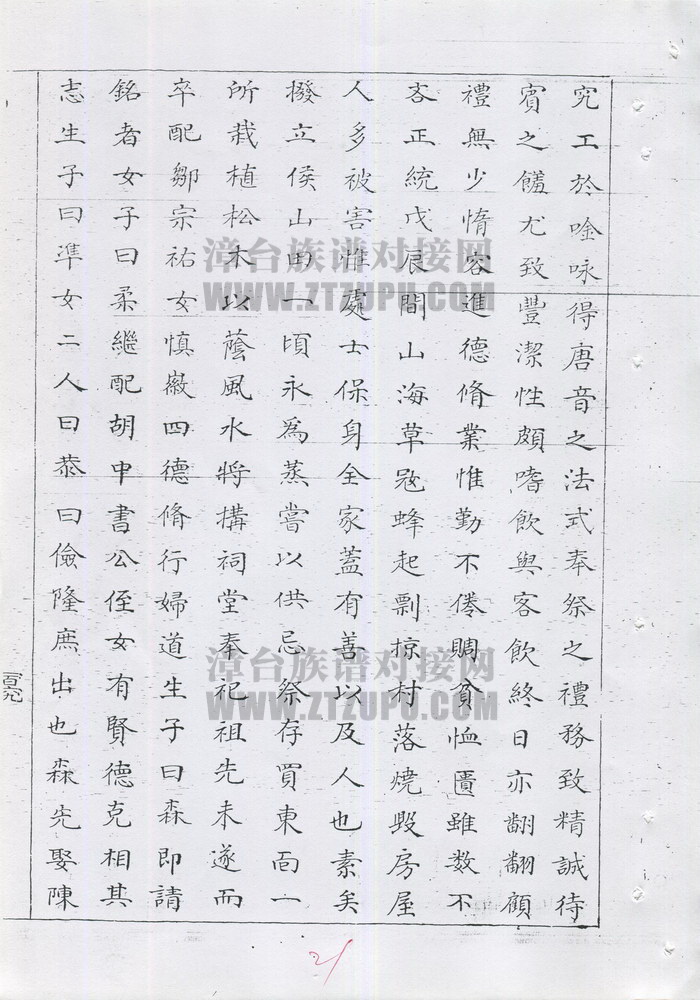 究工於唫咏得唐音之法式奉祭之禮務致精誠待
賓之饈尤致豐潔性頗嗜飲與客飲終日亦翩翩顧
禮無少惰容進德脩業惟勤不倦賙貧恤匱雖数不
吝正統戊辰間山海草寇蜂起剽掠村落燒毀房屋
人多被害惟處士保身全家蓋有善以及人也素矣
撥立侯山田一頃永為蒸嘗以供忌祭存買東面一
所栽植松木以蔭風水將搆祠堂奉祀祖先未遂而
卒配鄒宗祐女慎徽四德脩行婦道生子曰森即請
銘者女子曰柔繼配胡中書公侄女有賢德克相其
志生子曰準女二人曰恭曰儉隆庶出也森先娶陳
百六
21
漳台族谱对接网
WWW.ZTZUPU.COM
漳台族谱对接网
WWW.ZTZUPU.COM